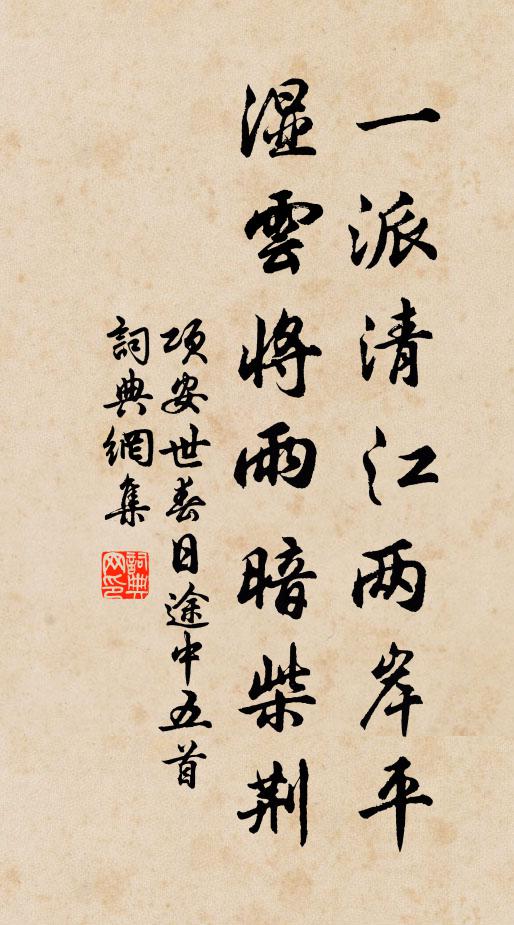 一派清江两岸平
湿雲将雨暗柴荆
项安世春日途中五首
詞典網集
詞典網印